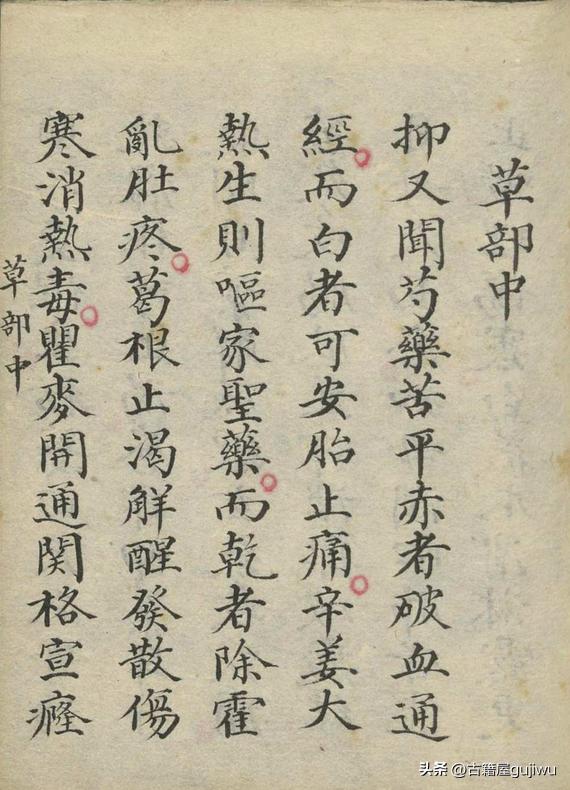 草部中
抑又聞芍藥苦平赤者破血通
經而白者可安胎止痛辛姜大
熱生則嘔家聖藥而乾者除霍
亂肚疼葛根止渴解醒發散傷
寒消熱毒瞿麥開通関格宣癃
草部中
头条 @古籍屋gujiwu